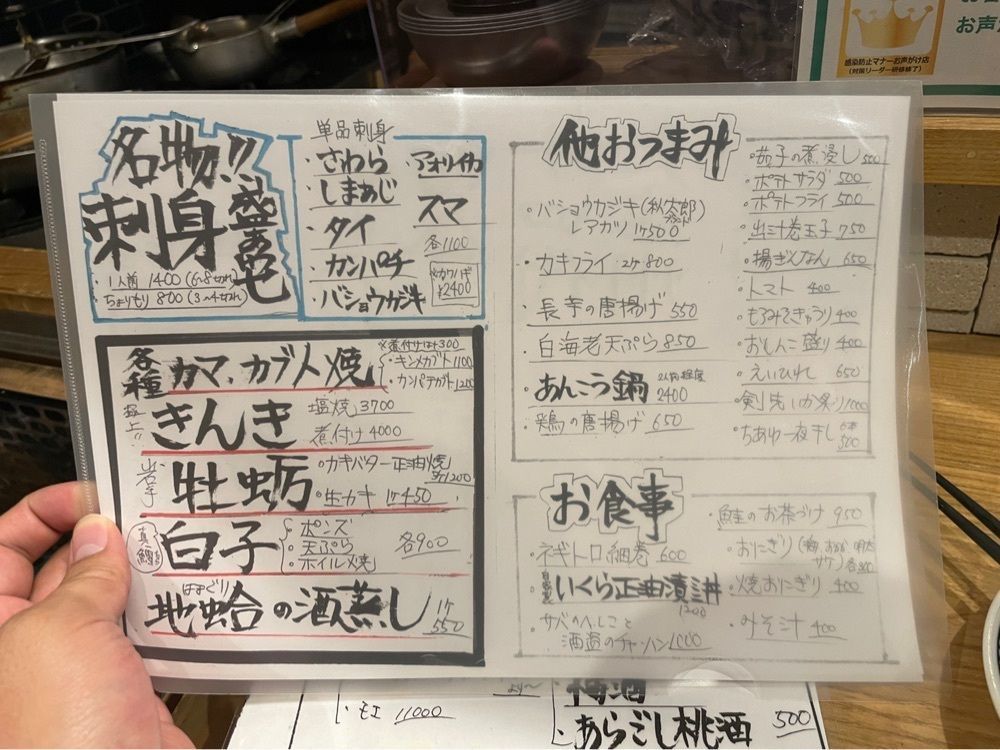 感染防止マナーお声がけ店
(対策リーダー研修修了)
お声
名物!!
刺身盛り合せ
・1人前 1400 (6~8切れ)
・ちょいもり 800 (3~4切れ)
単品刺身
・さわら
・しまあじ
・タイ
・カンパチ
・バショウカジキ
アオリイカ
スマ
各1100
※カワハギ
¥2400
各種 カマ、カブト焼
※煮付けは+300
・キンメカブト 1100
・カンパチカブト 1200
極上!! きんき
塩焼 3700
煮付け 4000
岩手 牡蛎
・カキバター正油焼
1200
・生カキ 1ケ450
真鱈 白子
・ポンズ
・天ぷら
・ホイル焼
各900
はまぐり
地蛤の酒蒸し 1ケ
550
他おつまみ
・バショウカジキ(秋太郎)
レアカツ 1ケ500
・カキフライ 2ケ 800
・長芋の唐揚げ 550
・白海老天ぷら 850
・あんこう鍋 2人前程度
2400
・鶏の唐揚げ 650
・茄子の煮浸し 500
・ポテトサラダ 500
・ポテトフライ 500
・出汁巻玉子 750
・揚ぎんなん 650
・トマト 400
・もろみきゅうり 400
・おしんこ盛り 400
・えいひれ 650
・剣先いか炙り 1000
・ちあゆ一夜干し 6本
500
お食事
・ネギトロ細巻 600
・自家製いくら正油漬ミニ丼
1200
・サバのへしこと
酒盗のチャーハン 1000
・鮭のお茶づけ 950
・おにぎり(梅、おかか、明太
サケ) 各300
・焼おにぎり 400
・みそ汁 400
・モエ 11000
梅酒
・あらごし桃酒 500